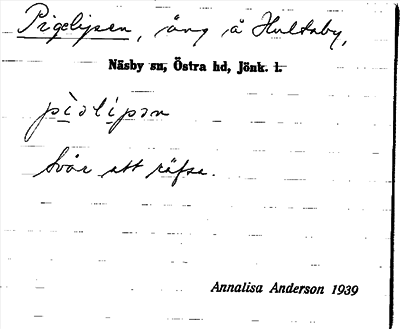 Pigelipen, äng å Hultaby,
Näsby sn, Östra hd, Jönk. l.
piəlipən
Svår att räfsa.
Annalisa Anderson 1939